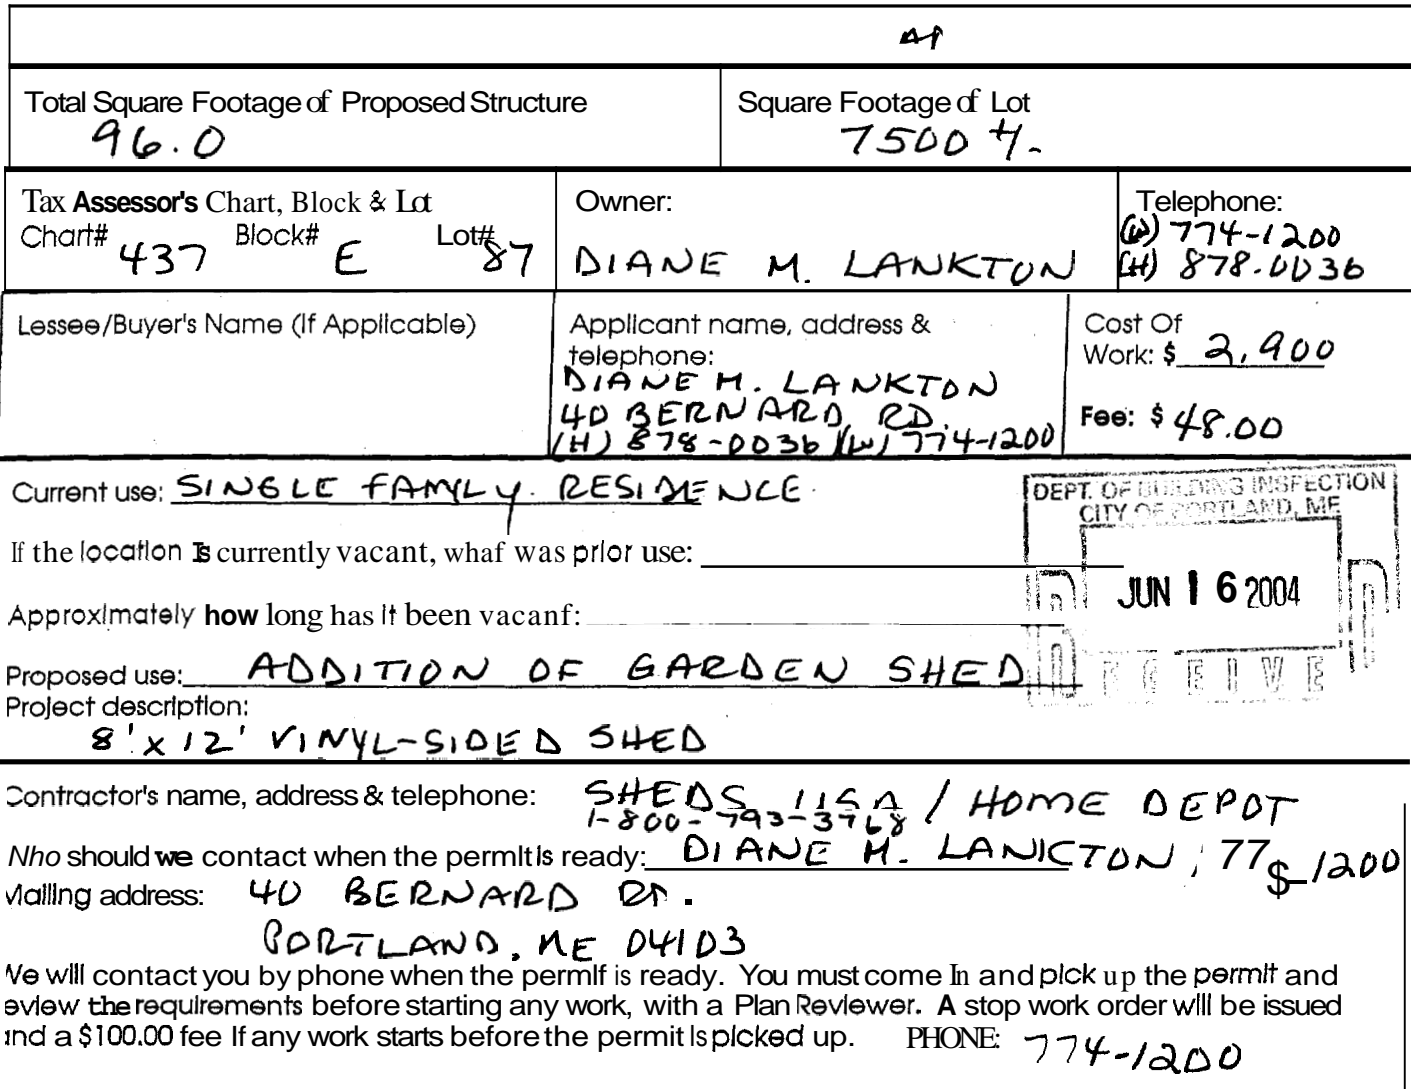 Total Square Footage of Proposed Structure
96.0
Square Footage of Lot
7500 +/-
Tax Assessor's Chart, Block & Lot
Chart# 437 Block# E Lot# 87
Owner:
DIANE M. LANKTON
Telephone:
(W) 774-1200
(H) 878-0036
Lessee/Buyer's Name (If Applicable)
Applicant name, address &
telephone:
DIANE M. LANKTON
40 BERNARD RD.
(H) 878-0036 (W) 774-1200
Cost Of
Work: $ 2,900
Fee: $ 48.00
Current use: SINGLE FAMILY RESIDENCE
If the location Is currently vacant, whaf was prior use:
Approximately how long has it been vacanf:
DEPT. OF BUILDING INSPECTION
CITY OF PORTLAND, ME
JUN 16 2004
RECEIVE
Proposed use: ADDITION OF GARDEN SHED
Project description:
8' x 12' VINYL-SIDED SHED
Contractor's name, address & telephone: SHEDS USA / HOME DEPOT
1-800-793-3768
Nho should we contact when the permit is ready: DIANE M. LANKTON, 77$-1200
Mailing address: 40 BERNARD RD.
PORTLAND, ME 04103
We will contact you by phone when the permif is ready. You must come In and pick up the permit and
eview the requirements before starting any work, with a Plan Reviewer. A stop work order will be issued
and a $100.00 fee If any work starts before the permit is picked up. PHONE: 774-1200